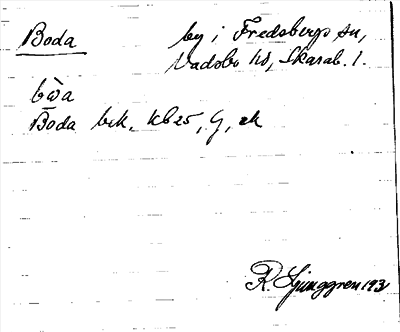 Boda by i Fredsbergs sn,
Vadsbo hd, Skarab. l.
bòa
Boda bek, kb25, G, ek
R. Ljunggren 193